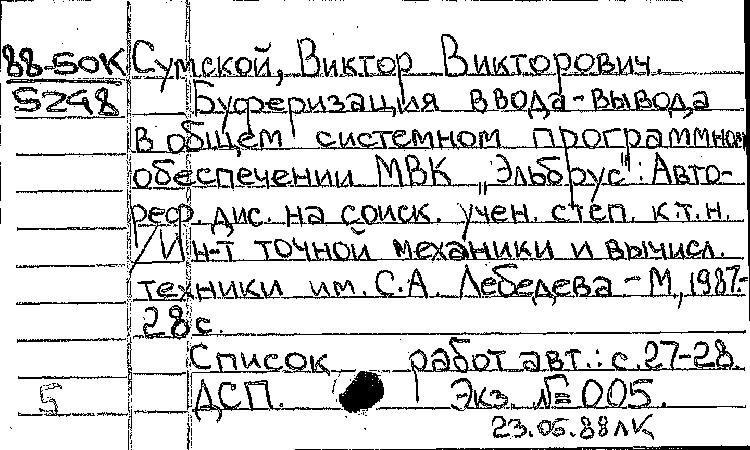 88-50К Сумской, Виктор Викторович.
5248 Буферизация ввода-вывода
в общем системном программном
обеспечении МВК „Эльбрус": Авто-
реф. дис. на соиск. учен. степ. к.т.н.
/Ин-т точной механики и вычисл.
техники им. С.А. Лебедева – М., 1987.-
28с.
Список работ авт.: с. 27-28.
5 ДСП. Экз. №005.
23.05.88ЛК